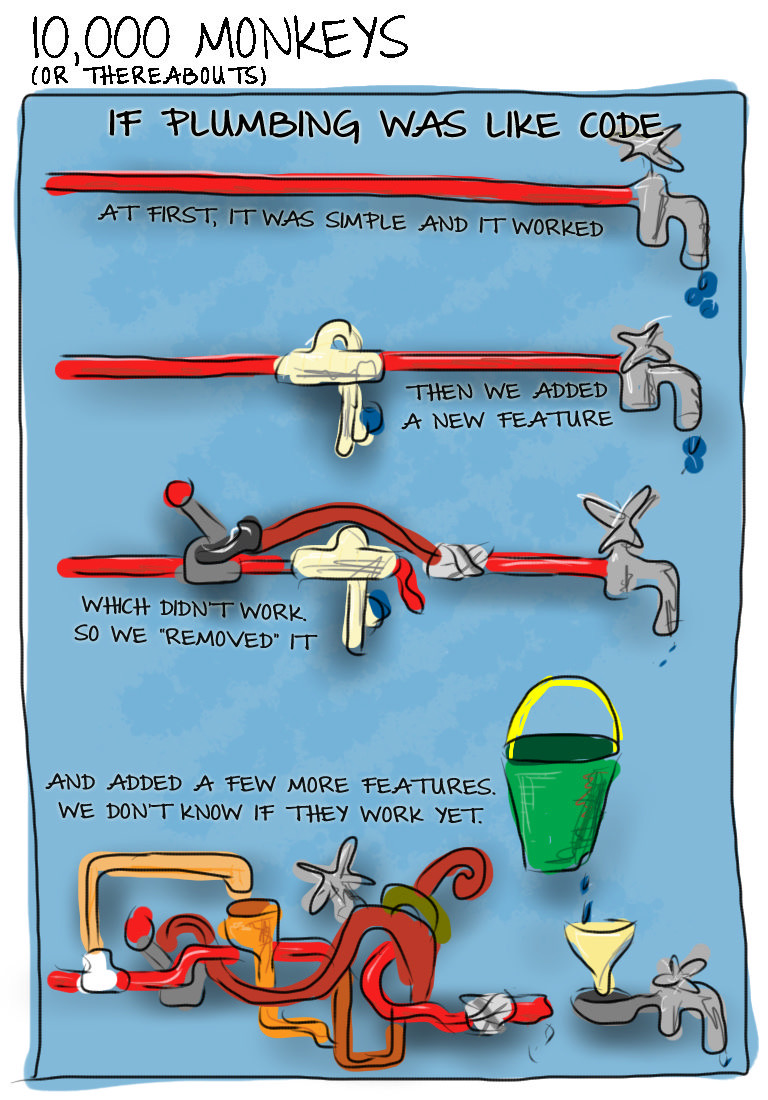 10,000 MONKEYS
(OR THEREABOUTS)
IF PLUMBING WAS LIKE CODE
AT FIRST, IT WAS SIMPLE AND IT WORKED
THEN WE ADDED
A NEW FEATURE
WHICH DIDN'T WORK.
SO WE "REMOVED" IT
AND ADDED A FEW MORE FEATURES.
WE DON'T KNOW IF THEY WORK YET.